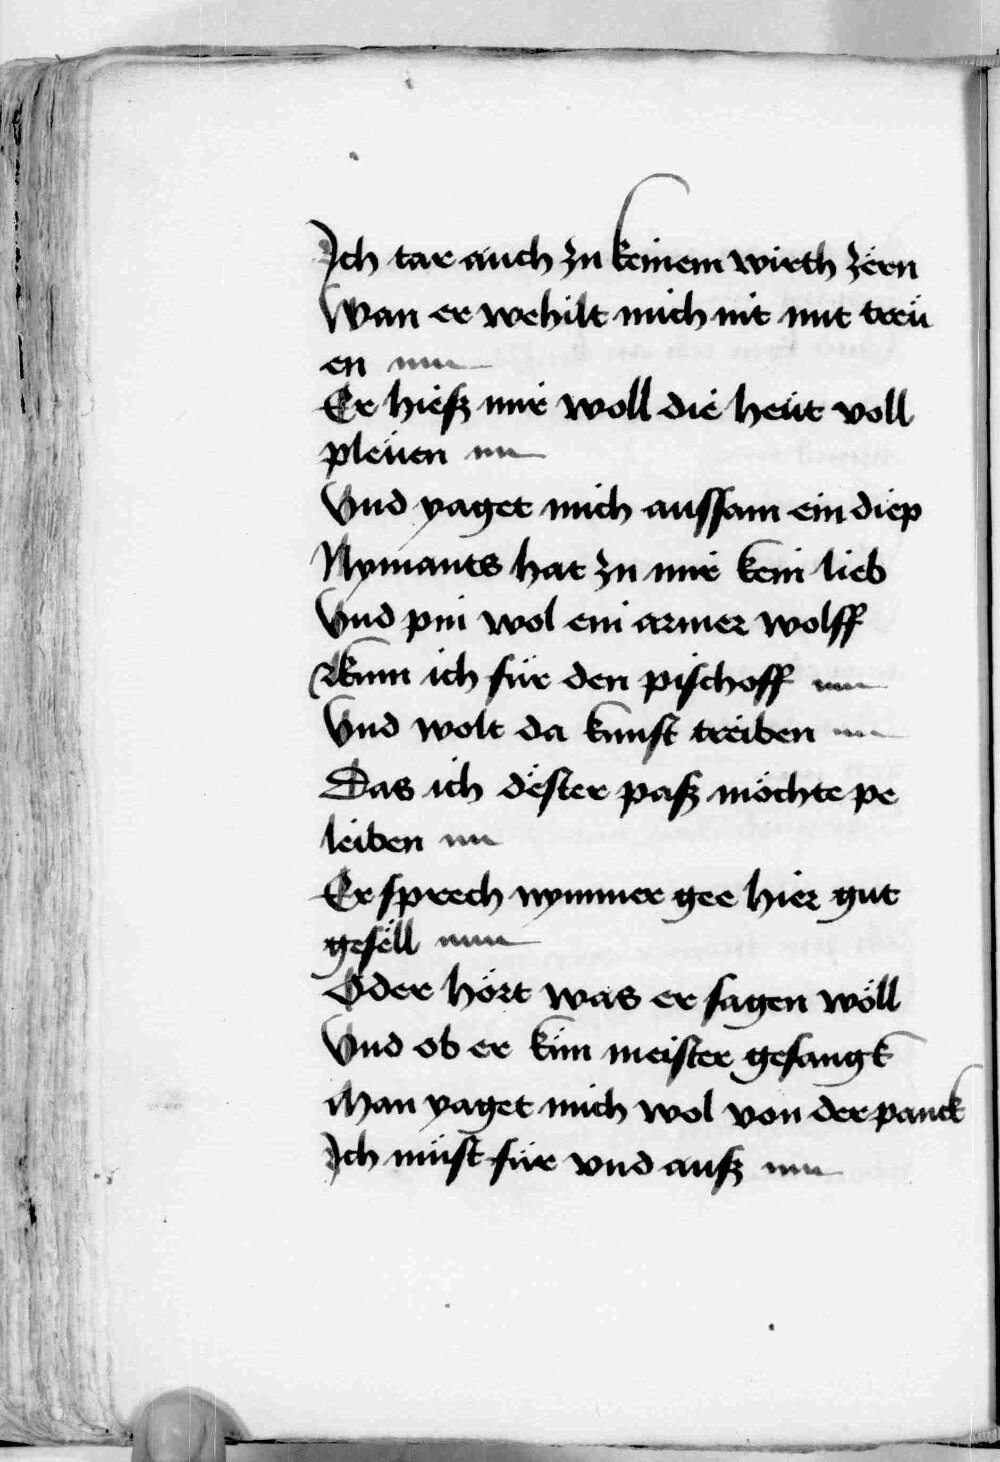 Ich tar auch zu keinem wirth zërn
Wan er wehilt mich nit mit treü
en
Er hiesz mir woll die heüt voll
pleüen
Vnd yaget mich aussam ein diep
Nymants hat zu mir kein lieb
Vnd pin wol ein armer wolff
Kum ich für den pischoff
Vnd wolt da kunst treiben
Das ich dëster pasz möchte pe
leiben
Er sprech nymmer gee hier gut
gesëll
Oder hört was er sagen wöll
Vnd ob er kün meister gesangk
Man yaget mich wol von der panck
Ich müst für vnd ausz